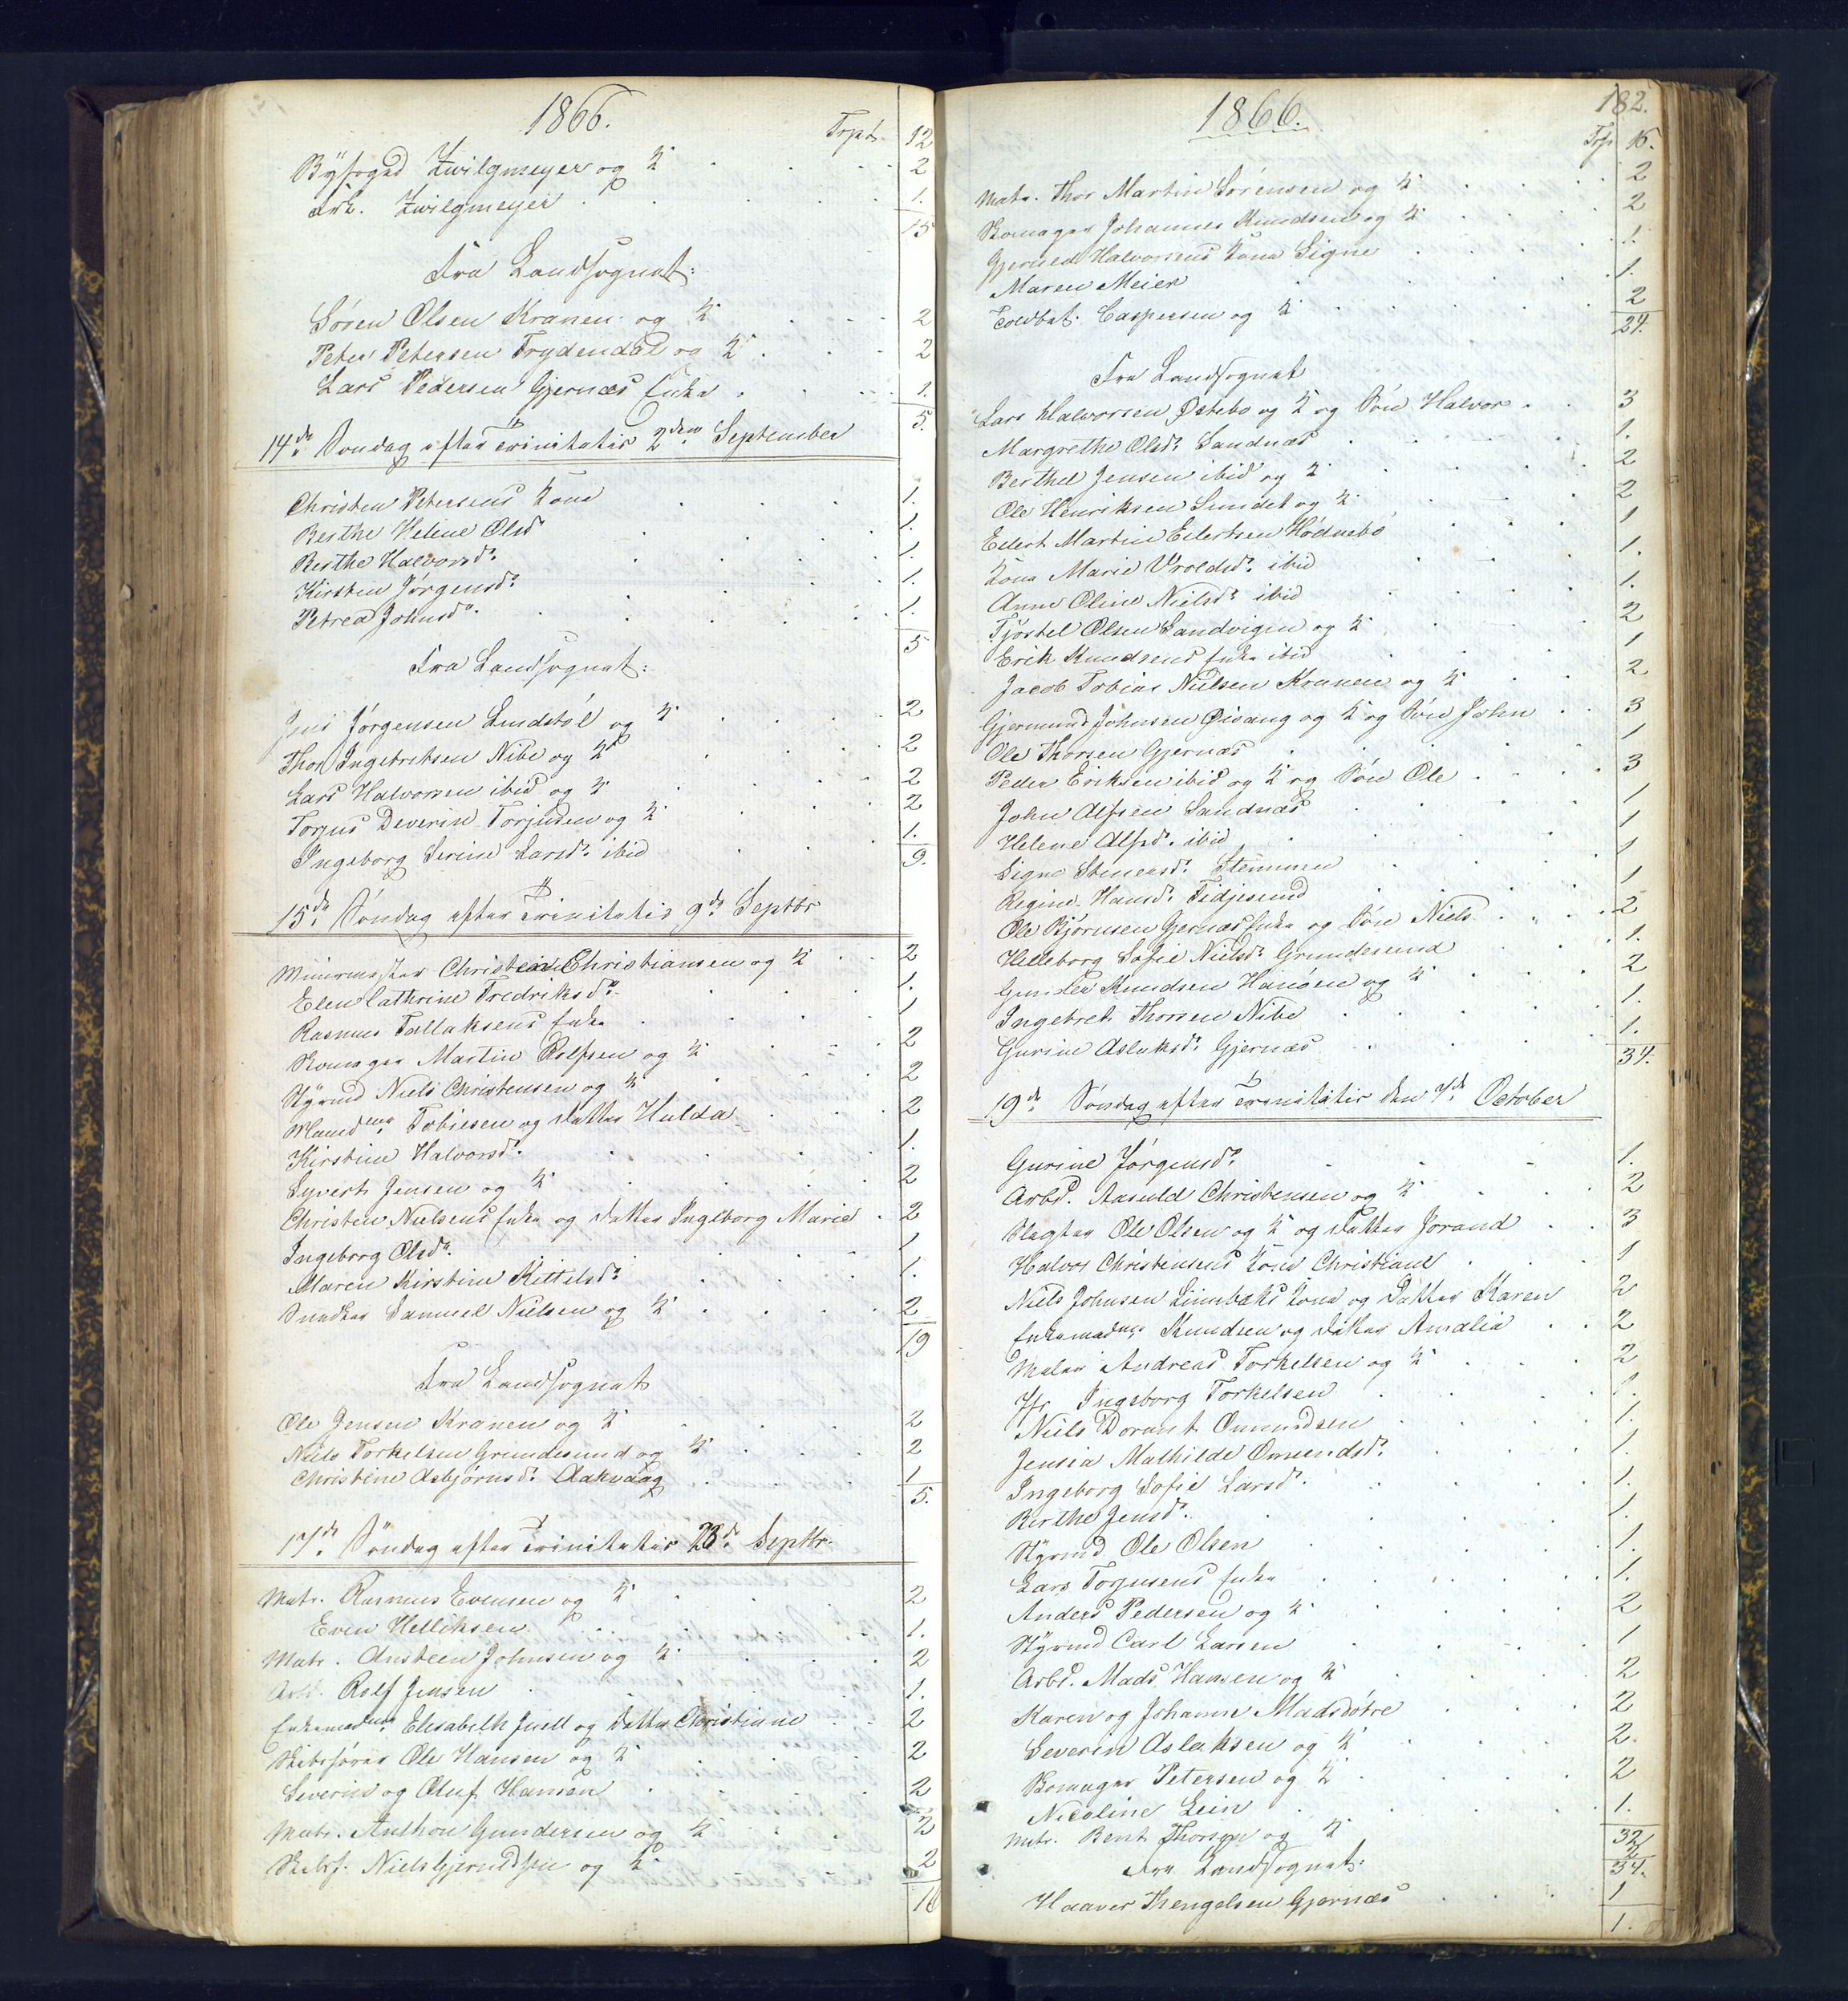 1866.
Trpt. 12
Byfoged Zwilgmeyer og K. 2
Frk. Zwilgmeyer 1.
15
Fra Landsognet:
Søren Olsen Kranen og K. 2
Peter Petersen Trydendal og K. 2
Lars Pedersen Gjernæs Enke 1.
5.
14de Søndag efter Trinitatis 2den September
Christen Petersens Kone 1.
Berthe Helene Olsd. 1.
Berthe Halvorsd. 1.
Kirsten Jørgensd. 1.
Petrea Johnsd. 1.
5
Fra Landsognet:
Jens Jørgensen Lindstøl og K. 2
Thor Ingebretsen Nibe og K. 2
Lars Halvorsen ibid og K. 2
Torjus Severin Torjusen og K. 2
Ingeborg Serine Larsd. ibid 1.
9.
15de Søndag efter Trinitatis 9de Septbr
Muurmester Christen Christiansen og K. 2
Elen Cathrine Fredriksd. 1.
Rasmus Tallaksens Enke 1
Skomager Martin Rolfsen og K. 2
Styrmd Niels Christensen og K. 2
Madme Tobiesen og Datter Hulda 2
Kirstine Halvorsd. 1.
Syvert Jensen og K. 2
Christen Nielsens Enke og Datter Ingeborg Marie 2
Ingeborg Olsd. 1
Maren Kirstine Kittelsd. 1.
Snedker Samuel Nielsen og K. 2
19
Fra Landsognet
Ole Jensen Kranen og K. 2
Niels Torkelsen Grundesund og K. 2
Christine Asbjørnsd. Aakvaag 1
5.
17de Søndag efter Trinitatis 23de Septbr.
Matr. Rasmus Evensen og K. 2
Even Helliksen 1.
Matr. Ansteen Johnsen og K. 2
Arbd. Rolf Jensen 1.
Enkemadme Elisabeth Juell og Datter Christiane 2
Skibsfører Ole Hansen og K. 2
Severin og Oluf Hansen 2
Matr. Anthon Gundersen og K. 2
Skibsf. Niels Gjeruldsen og K. 2
16
1866.
182.
Trp. 16.
Matr. Thor Martin Sørensen og K. 2
Skomager Johannes Knudsen og K. 2
Gjeruld Halvorsens Kone Signe 1.
Maren Meier 1.
Toldbet. Caspersen og K. 2
24.
Fra Landsognet
Lars Halvorsen Østebø og K. og Søn Halvor 3
Margrethe Olsd. Sandnæs 1.
Berthel Jensen ibid og K. 2
Ole Henriksen Sundet og K. 2
Eilert Martin Eilertsen Hødnebø 1
Kone Marie Vroldsd. ibid 1.
Anne Oline Nielsd. ibid 1.
Tjøstel Olsen Sandvigen og K. 2
Erik Knudsens Enke ibid 1
Jacob Tobias Nielsen Kranen og K. 2
Gjermund Johnsen Øisang og K. og Søn John 3
Ole Thorsen Gjernæs 1
Peder Eriksen ibid og K. og Søn Ole 3
John Alfsen Sandnæs 1
Helene Alfsd. ibid 1
Signe Steners d. Stemmen 1
Regine Hansd. Tidjesund 1
Ole Bjørnsen Gjernæs Enke og Søn Niels 2
Helleborg Sofie Nielsd. Grundesund 1.
Gunder Knudsen Hanøen og K. 2
Ingebret Thorsen Nibe 1.
Gurine Aslaksd. Gjernæs 1.
34.
19de Søndag efter Trinitatis den 7de October
Gurine Jørgensd. 1.
Arbd. Aasuld Christensen og K. 2
Slagter Ole Olsen og K. og Datter Jorand 3
Halvor Christensens Kone Christiane 1
Niels Johnsen Limbæks Kone og Datter Karen 2
Enkemadme Knudsen og Datter Amalia 2
Maler Andreas Torkelsen og K. 2
Jfr. Ingeborg Torkelsen 1.
Niels Dorant Omundsen 1.
Jensia Mathilde Omundsd. 1.
Ingeborg Sofie Larsd. 1.
Berthe Jensd. 1.
Styrmd Ole Olsen 1.
Lars Torjusens Enke 1.
Anders Pedersen og K. 2
Styrmd Carl Larsen 1
Arbd. Mads Hansen og K. 2
Karen og Johanne Madsdøtre 2
Severin Aslaksen og K. 2.
Skomager Petersen og K. 2
Nicoline Lein 1.
32
Matr. Bent Thorsen og K. 2
34.
Fra Landsognet:
Haaver Thengelsen Gjernæs 1
1.